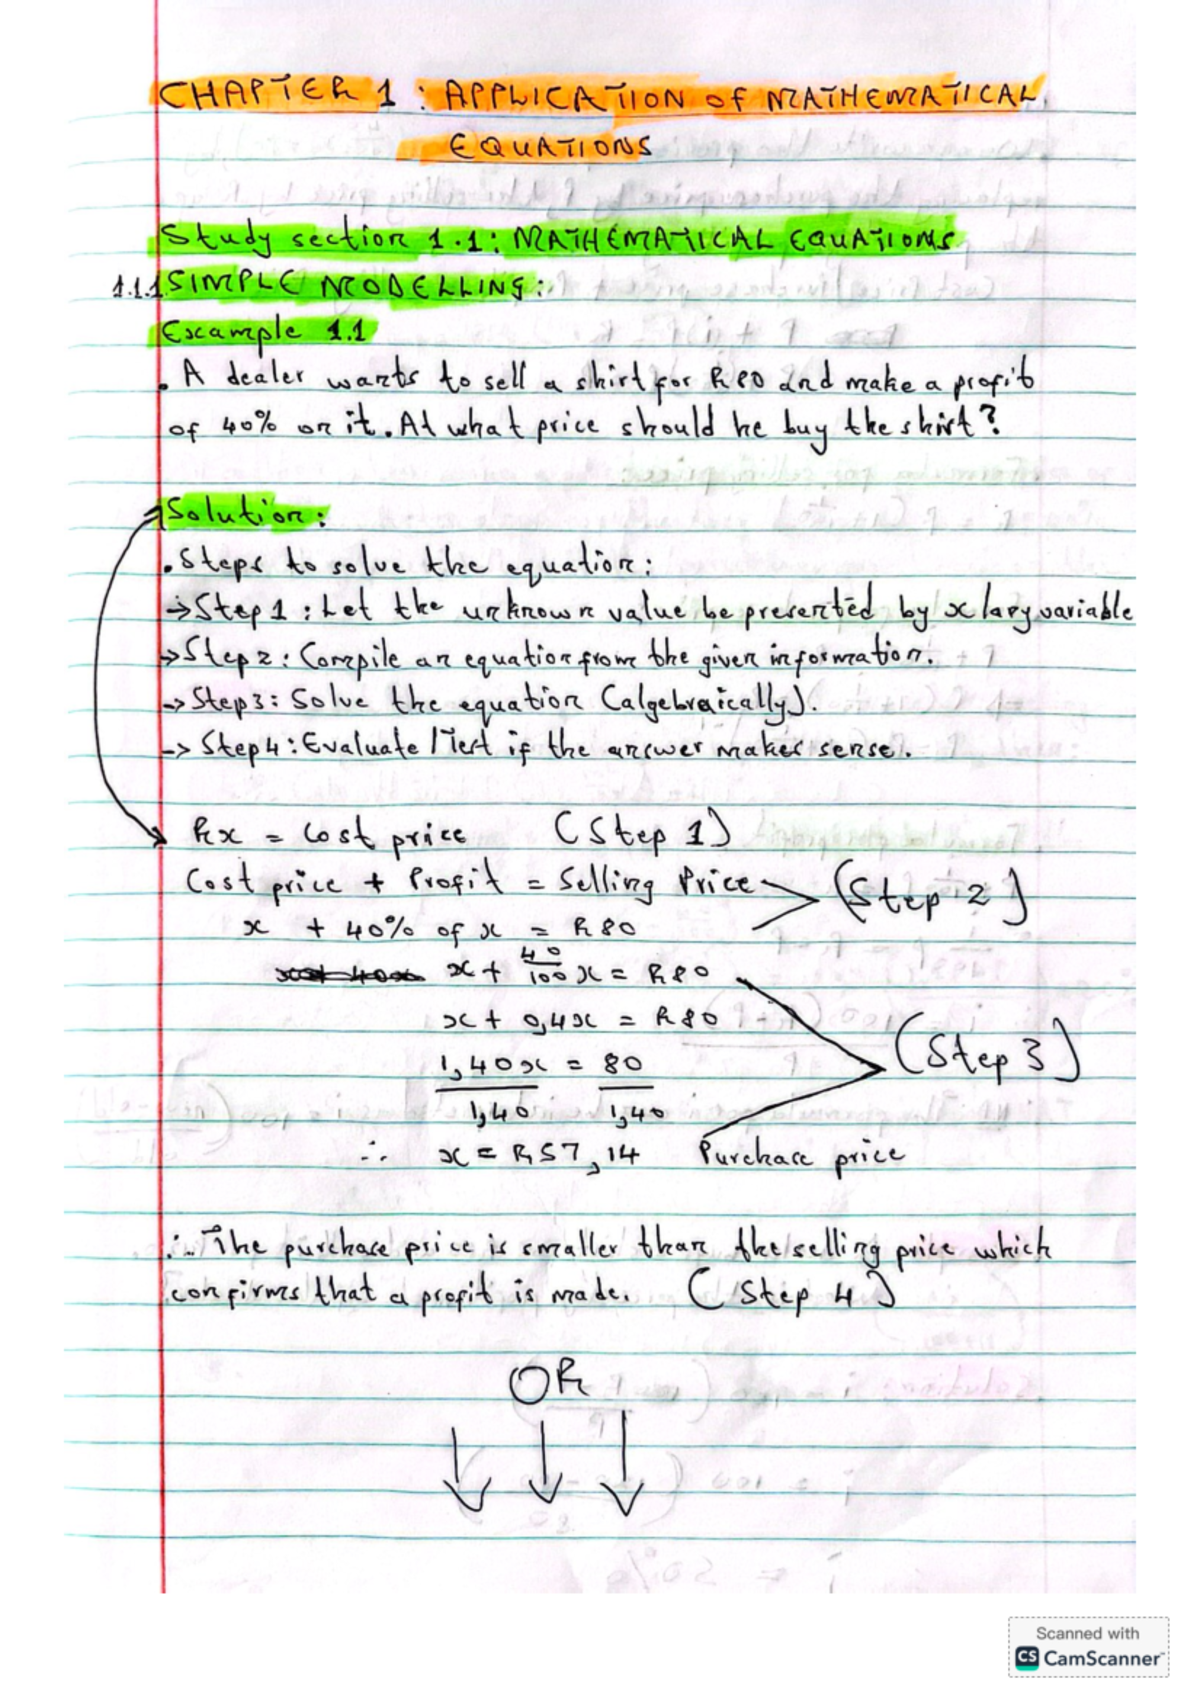 CHAPTER 1 : APPLICATION of MATHEMATICAL
EQUATIONS
Study section 1.1: MATHEMATICAL EQUATIONS
1.1.1 SIMPLE MODELLING:
Example 1.1
. A dealer wants to sell a shirt for R80 and make a profit
of 40% on it. At what price should he buy the shirt?
Solution:
. Steps to solve the equation:
→ Step 1 : Let the unknown value be presented by x /any variable
→ Step 2 : Compile an equation from the given information.
→ Step 3 : Solve the equation (algebraically).
→ Step 4 : Evaluate / Test if the answer makes sense.
Rx = Cost price (Step 1)
Cost price + Profit = Selling Price (Step 2)
x + 40% of x = R80
x + 40/100 x = R80
x + 0,4x = R80 (Step 3)
1,40x = 80
1,40 1,40
∴ x = R57,14 Purchase price
∴ The purchase price is smaller than the selling price which
confirms that a profit is made. (Step 4)
OR
Scanned with
CS CamScanner